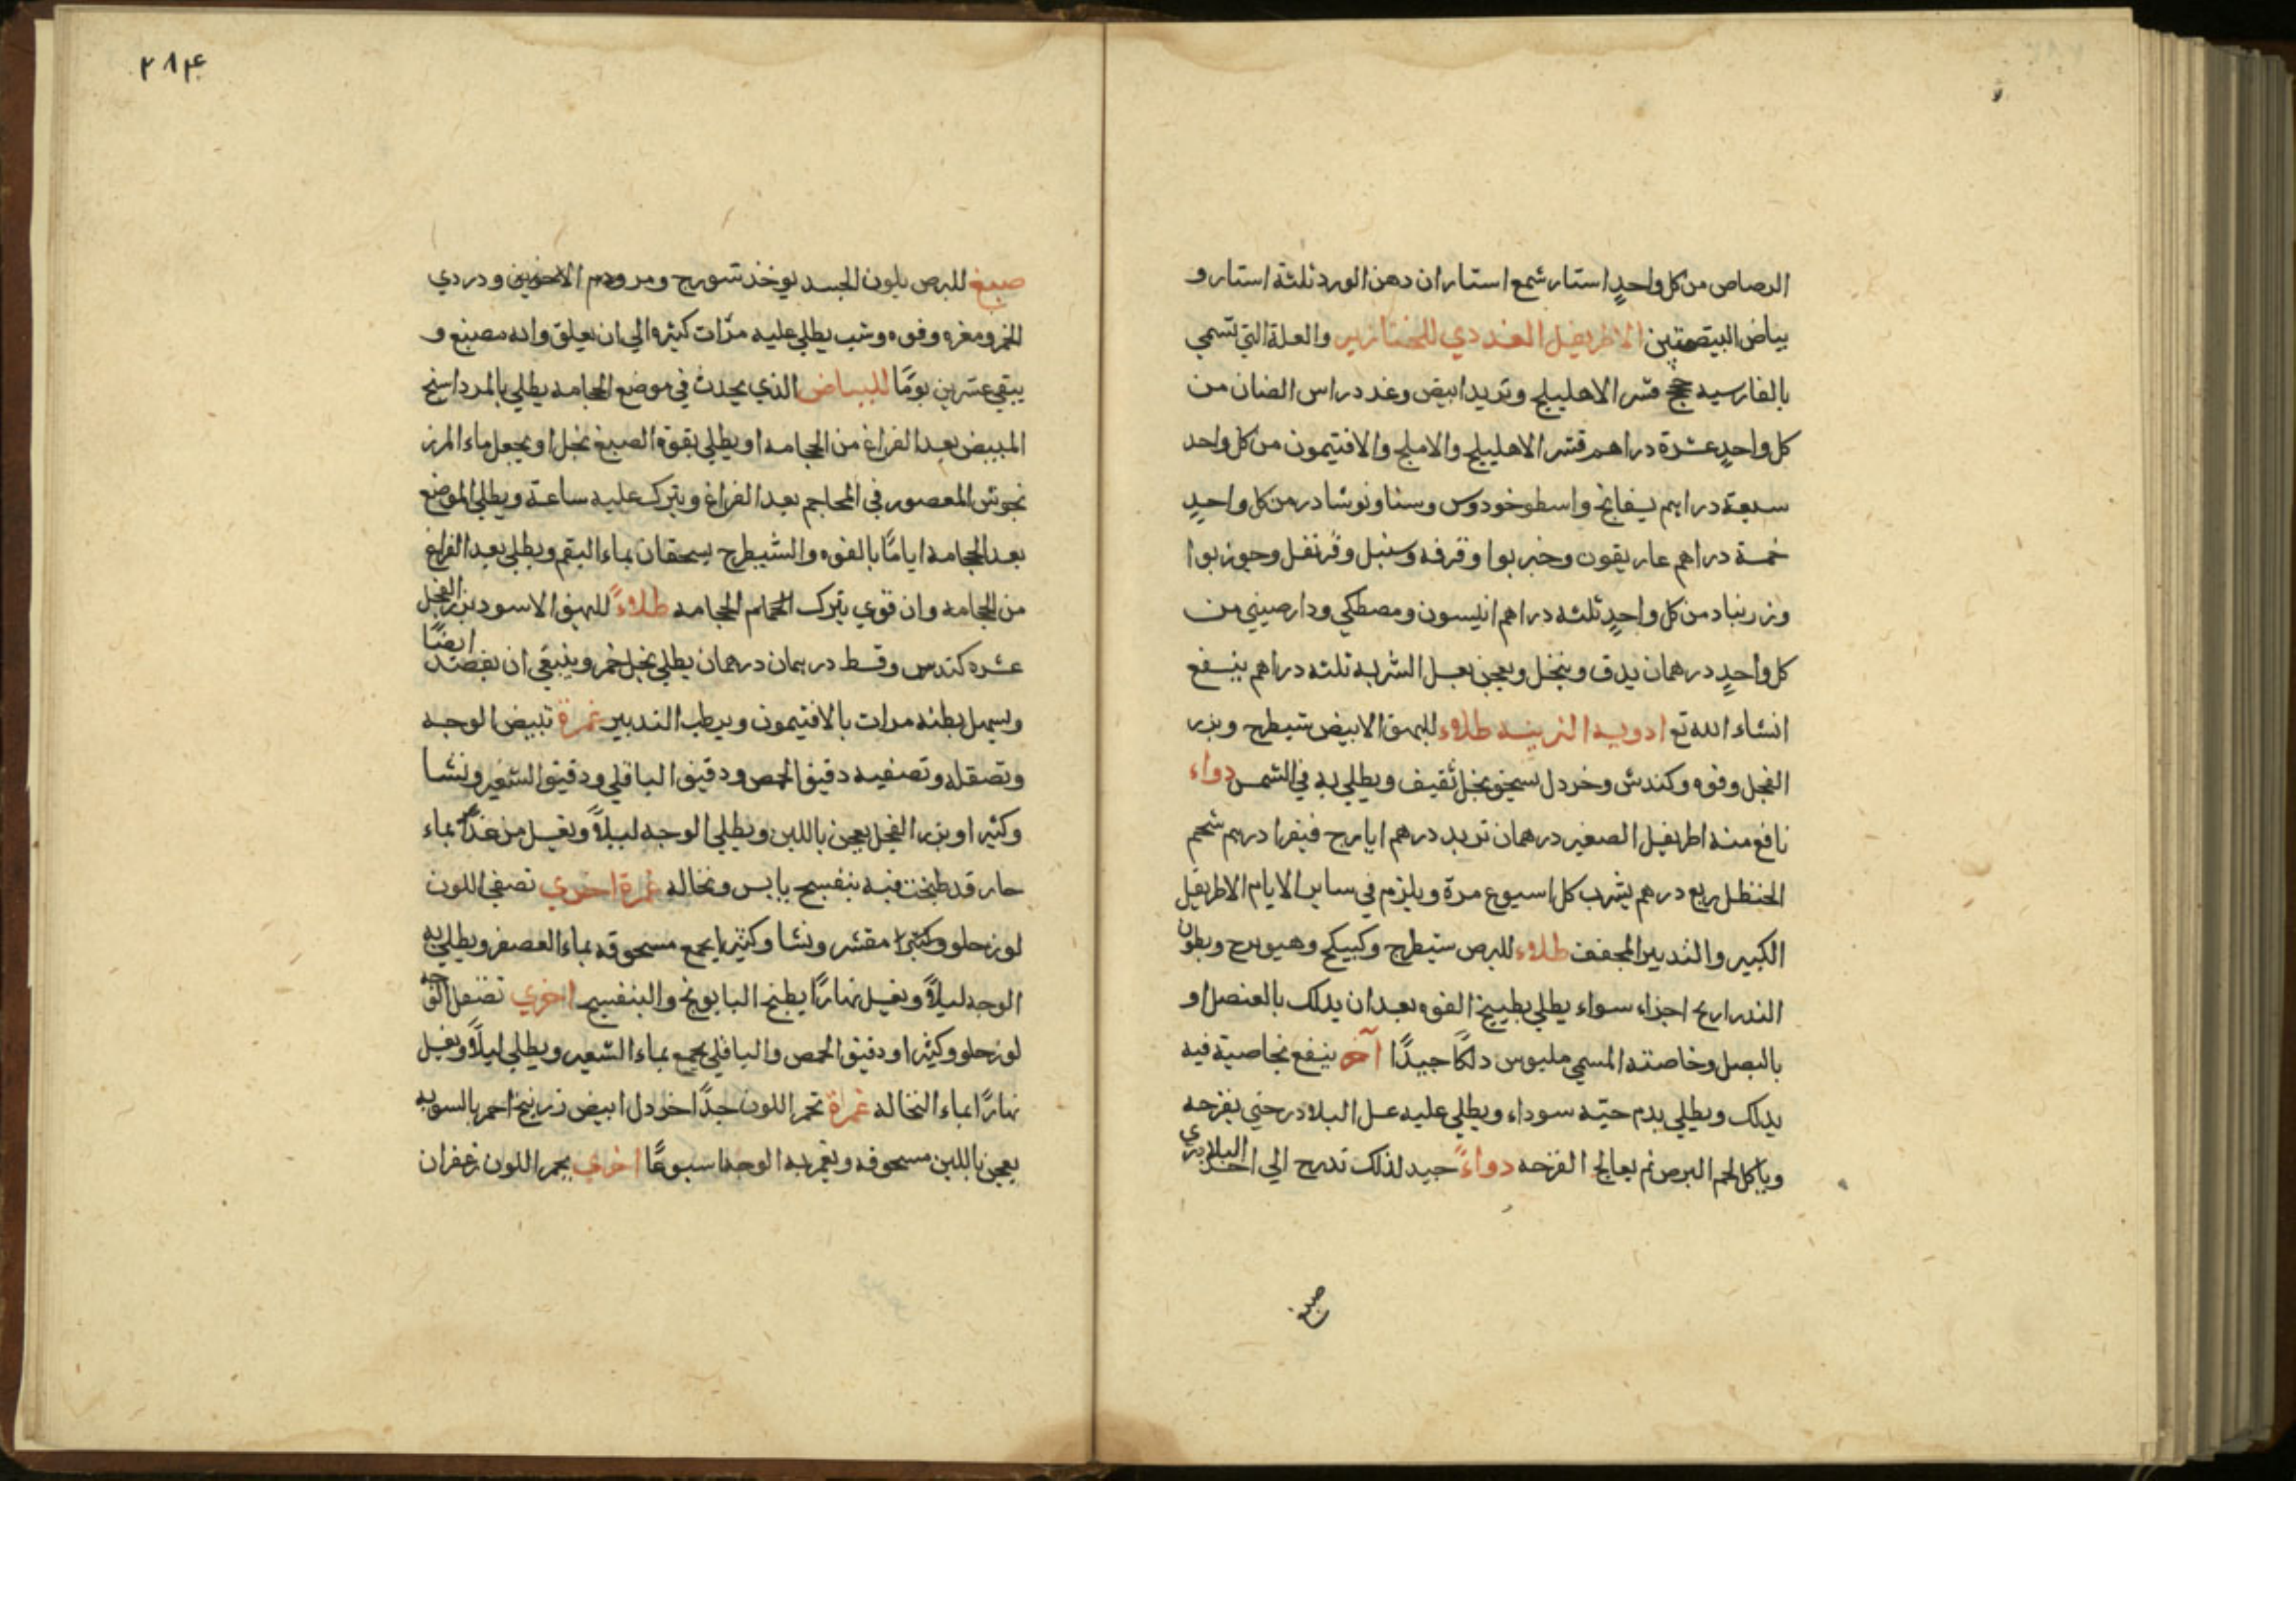 الرصاص من كل واحدٍ استار شمع استاران دهن الورد ثلثة استار و
بياض البيضتين الاطريفل الغددي للخنازير والعلة التي تسمى
بالفارسيه قشر الاهليلج وتربد ابيض وغدد راس الضان من
كل واحدٍ عشرة دراهم قشر الاهليلج والاملج والافتيمون من كل واحد
سبعة دراهم بسفايج واسطوخودوس وسنا ونوشادر من كل واحدٍ
خمسة دراهم غاريقون وخيربوا وقرفه وسنبل وقرنفل وجوزبوا
وزرنباد من كل واحدٍ ثلثه دراهم انيسون ومصطكي ودارصيني من
كل واحدٍ درهمان يدق وينخل ويعجن بعسل الشربه ثلثه دراهم ينفع
انشاء الله تع ادويه الزينه طلاء للبهق الابيض شيطرج وبزر
الفجل وفوه وكندش وخردل يسحق بخل ثقيف ويطلي به في الشمس دواء
نافع منه اطريفل الصغير درهمان تربد درهم ايارج فيقرا درهم شحم
الحنظل ربع درهم يشرب كل اسبوع مرة ويلزم في ساير الايام الاطريفل
الكبير والتدبير المجفف طلاء للبرص شيطرج وكبيكج وهيوبرج وبطون
الذراريح اجزاء سواء يطلي بطبيخ الفوه بعد ان يدلك بالعنصل او
بالبصل وخاصته المسمي مليوس دلكًا جيدًا آخر ينفع بخاصية فيه
يدلك ويطلي بدم حيّه سوداء ويطلي عليه عسل البلادر حتي يقرحه
وياكل لحم البرص ثم يعالج القرحه دواءً جيد لذلك تدرج الي اخذ البلادري
صبغ
٢٨٤
صبغ للبرص بلون الجسد يوخذ شورج ومر ودم الاخوين ودردي
الخمر ومغره وفوه وشب يطلي عليه مرّات كثيره الي ان يعلق وانه مصبغ و
يبقي عشرين يومًا للبياض الذي يحدث في موضع الحجامه يطلي بالمرداسنج
المبيض بعد الفراغ من الحجامه او يطلي بقوة الصبغ بخل او يجعل ماء المرز
نجوش المعصور في المحاجم بعد الفراغ ويترك عليه ساعة ويطلي الموضع
بعد الحجامه ايامًا بالفوه والشيطرج يسحقان بماء البقم ويطلي بعد الفراغ
من الحجامه وان قوي يترك الحجامه طلاءً للبهق الاسود بزر الفجل
عشره كندس وقسط درهمان درهمان يطلي بخل خمر وينبغي ان يفصد ايضًا
ويسهل بطنه مرات بالافتيمون ويرطب التدبير غمرة تبيض الوجه
وتصقله وتصفيه دقيق الحمص ودقيق الباقلي ودقيق الشعير ونشا
وكثيرا وبزر الفجل يعجن باللبن ويطلي الوجه ليلاً ويغسل من غدًا بماء
حار قد طبخت فيه بنفسج يابس ونخاله غمرة اخري تصفي اللون
لوز حلو مقشر ونشا وكثيرا يجمع مسحوقه بماء العصفر ويطلي به
الوجه ليلاً ويغسل نهارًا بطبخ البابونج والبنفسج اخري تصقل الوجه
لوز حلو وكثيرا ودقيق الحمص والباقلي يجمع بماء الشعير ويطلي ليلاً ويغسل
نهارًا بماء النخاله غمرة تحمر اللون جدًا خردل ابيض زرنيخ احمر بالسويه
يعجن باللبن مسحوقه ويغمر به الوجه اسبوعًا اخري يحمر اللون زعفران